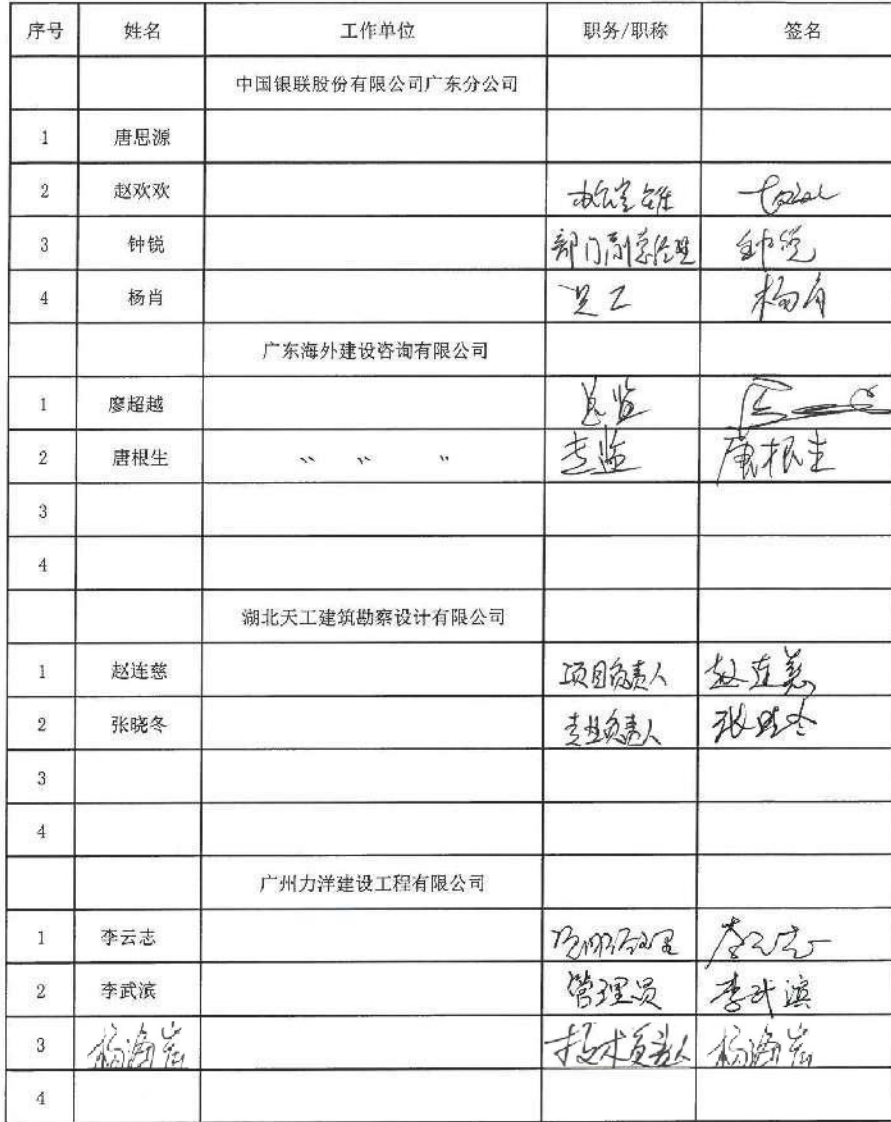 序号 姓名 工作单位 职务/职称 签名
中国银联股份有限公司广东分公司
1 唐思源
2 赵欢欢
3 钟锐 部门副总经理 钟锐
4 杨肖 员工 杨肖
广东海外建设咨询有限公司
1 廖超越 总监
2 唐根生 〃 〃 〃 专监 唐根生
3
4
湖北天工建筑勘察设计有限公司
1 赵连慈 项目负责人 赵连慈
2 张晓冬 专业负责人 张晓冬
3
4
广州力洋建设工程有限公司
1 李云志 项目经理 李云志
2 李武滨 管理员 李武滨
3 技术负责人
4